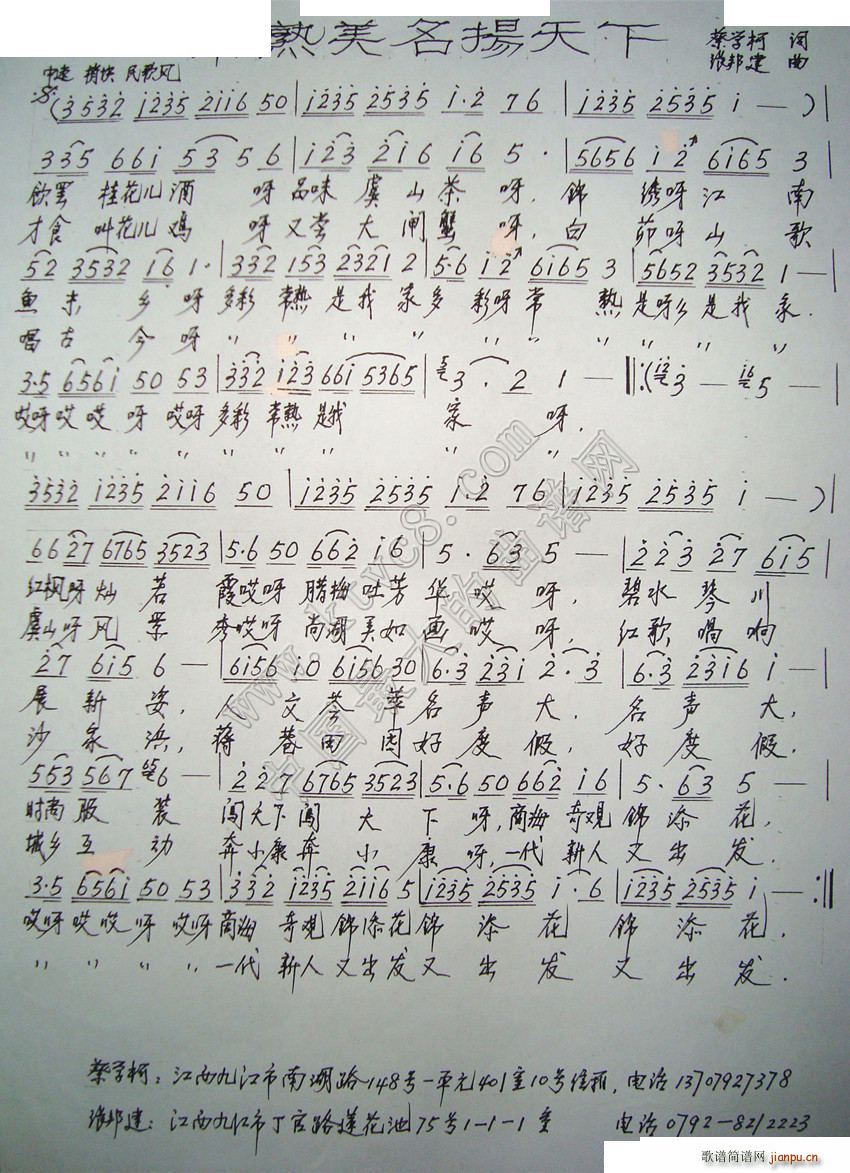 熟美名揚天下
蔡学柯 词
张邦建 曲
中速 稍快 民歌风
(3532 1235 2116 50 | 1235 2535 1·2 76 | 1235 2535 1 — )|
335 661 53 5 6 | 123 216 16 5· | 5656 12 6165 3
饮罢 桂花儿酒 呀品味 虞山茶呀,锦绣呀江南
才食 叫花儿鸡 呀又尝大闸蟹呀,白茆呀山歌
52 3532 16 1· | 332 153 2321 2 | 5·6 12 6165 3 | 5652 3532 1 —
鱼米乡呀多彩常熟是我家多彩呀常熟是呀么是我家.
唱古今呀〃〃〃〃〃〃〃〃〃
3·5 6561 50 53 | 332 123 661 5365 | 3· 2 1 — ‖:(3 — 5 —
哎呀哎哎呀哎呀多彩常熟是我家呀,
〃〃〃〃〃〃〃〃〃
3532 1235 2116 50 | 1235 2535 1·2 76 | 1235 2535 1 — )|
6627 6765 3523 | 5·6 50 662 16 | 5· 63 5 — | 223 27 615
红枫呀灿若霞哎呀腊梅吐芳华哎呀,碧水琴川
虞山呀风景秀哎呀尚湖美如画哎呀,红歌唱啊
27 615 6 — | 6156 10 6156 30 | 6·3 231 2·3 | 6·3 2316 1 — |
展新姿,人文荟萃名声大,名声大,
沙家浜,蒋巷田园好度假,好度假.
553 567 6 — | 227 6765 3523 | 5·6 50 662 16 | 5· 63 5 — |
时尚服装闯天下闯天下呀,商海奇观锦添花,
城乡互动奔小康奔小康呀,一代新人又出发.
3·5 6561 50 53 | 332 1235 2116 5 | 1235 2535 1·6 | 1235 2535 1 — :‖
哎呀哎哎呀哎呀商海奇观锦添花锦添花锦添花,
〃〃〃〃一代新人又出发又出发又出发.
蔡学柯:江西九江市南湖路148号一单元401室10号信箱,电话13707927378
张邦建:江西九江市丁官路莲花池75号1-1-1室 电话0792-8212223
www.ktvc8.com
中国最大的曲谱网
歌谱简谱网
jianpu.cn